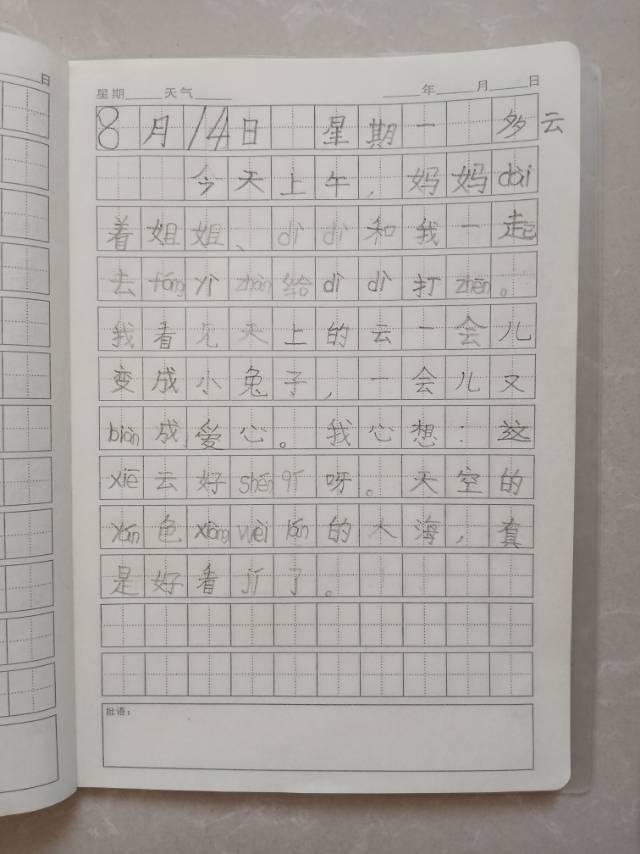 日
星期 天气 年 月 日
8月14日 星期一 多云
今天上午，妈妈dài
着姐姐、dì dì和我一起
去fáng yì zhàn给dì dì打zhēn。
我看见天上的云一会儿
变成小兔子，一会儿又
biàn成爱心。我心想：这
xiē云好shén qí呀。天空的
yán色xiàng wèi lán的大海，真
是好看jí了。
批语：